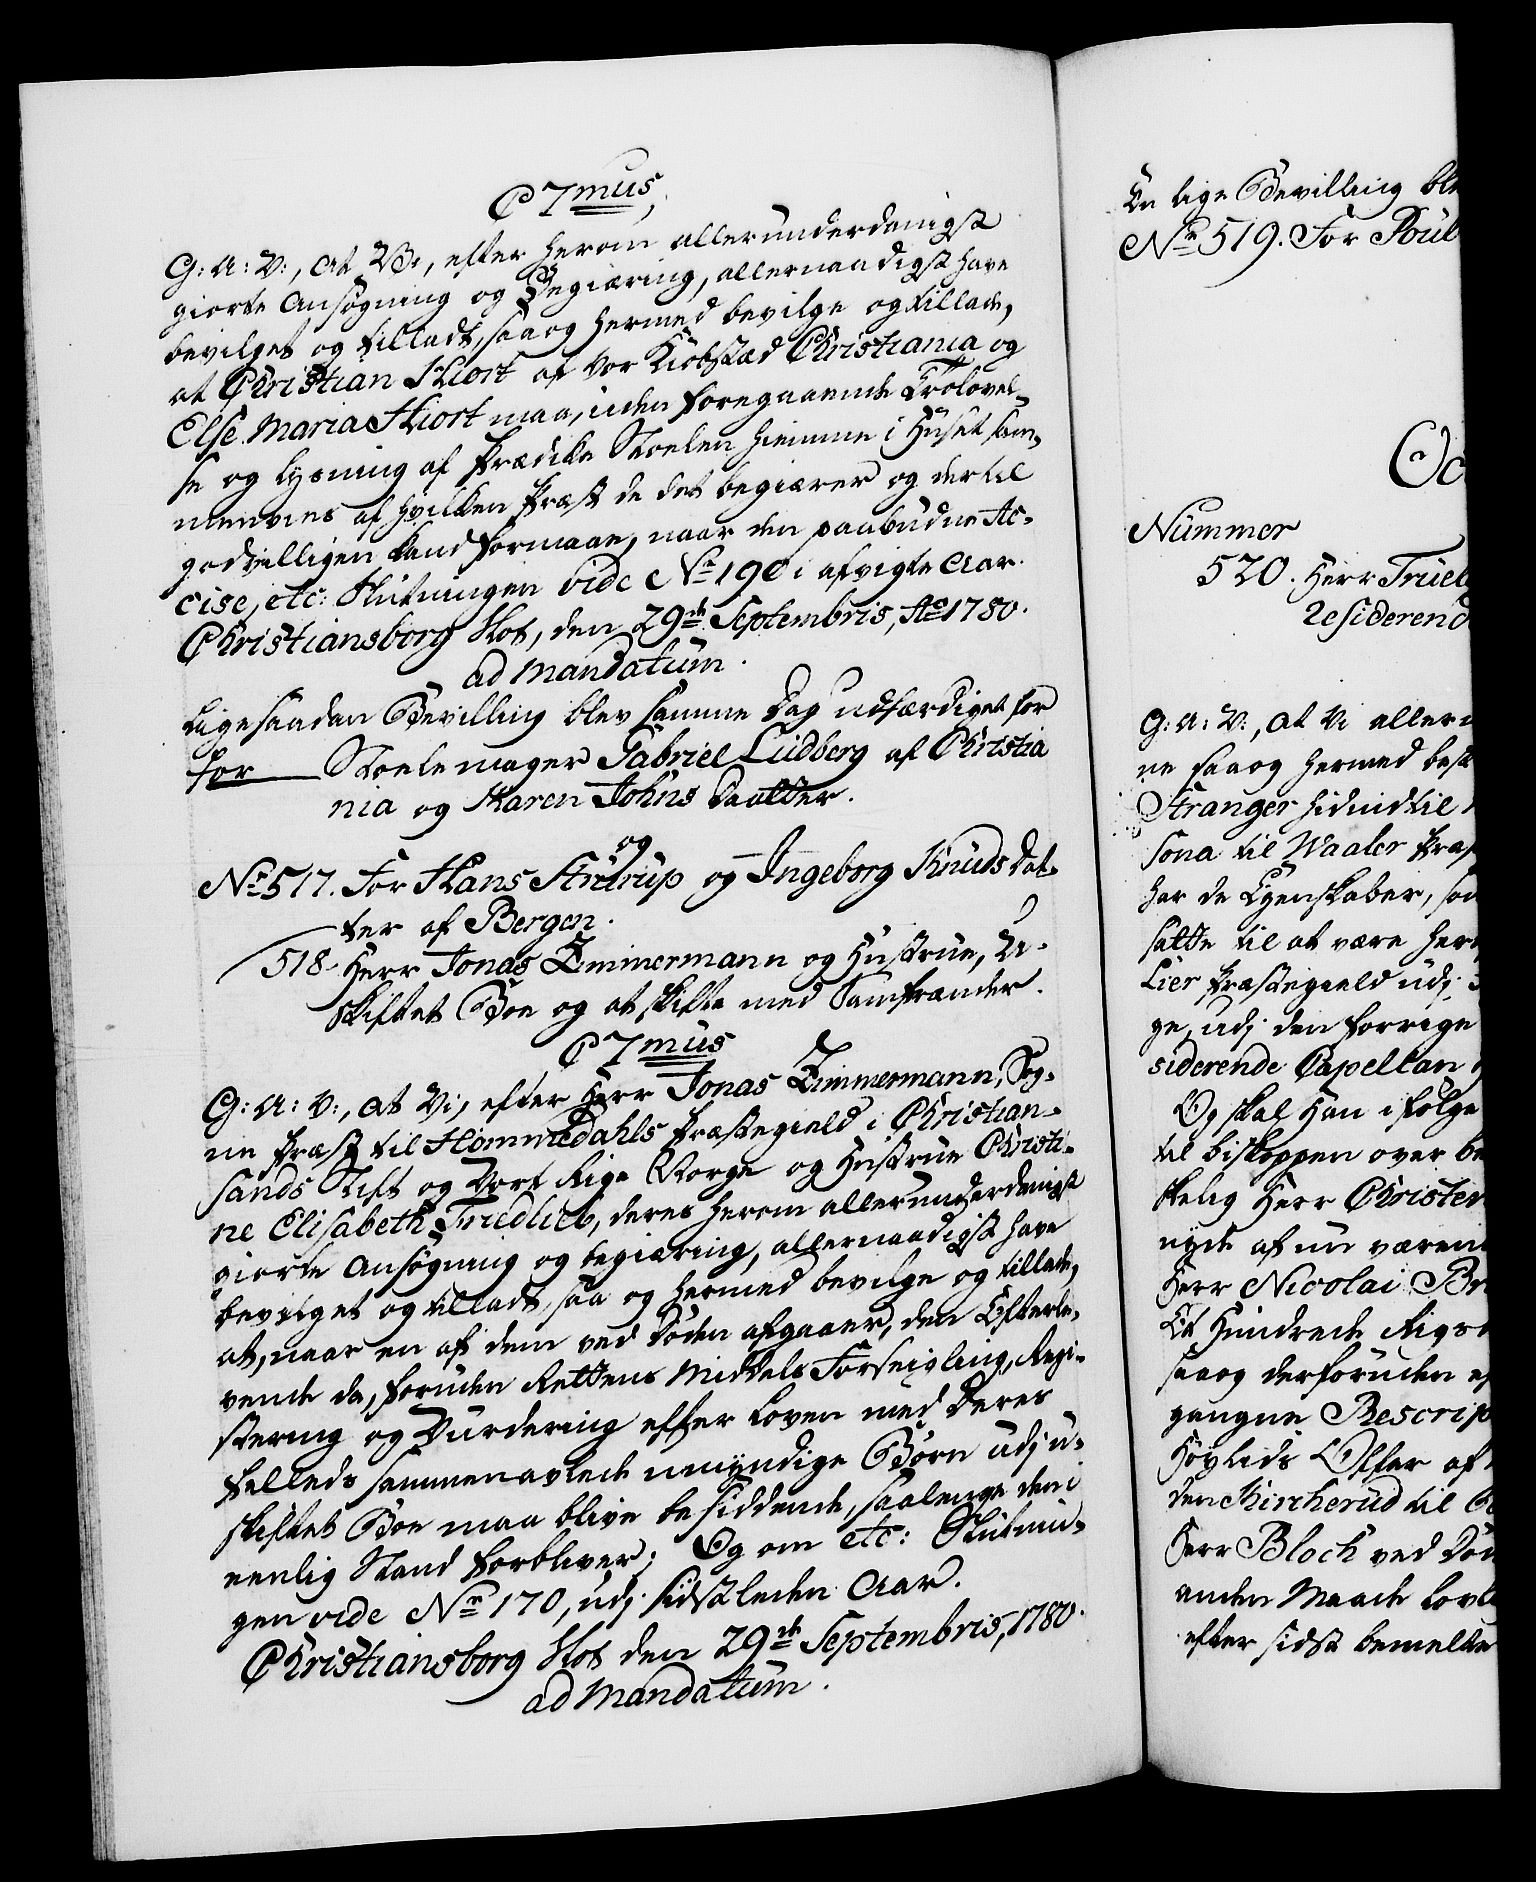 C 7mus,
G: A: V:, at Vi, efter herom allerunderdanigst
giorte Ansøgning og Begiæring, allernaadigst have
bevilget og tilladt, saa og hermed bevilge og tillade,
at Christian Kiort af vor Kiøbstæd Christiania og
Else Maria Kiort maa, uden foregaaende Trolovel-
se og Lysning af Prædike Stoelen hiemme i Huset sam-
menvies af hvilken Præst de det begiærer og dertil
godvilligen kand formaae, naar den paabudne Ac-
cise, etc: Slutningen vide No 190 i afvigte Aar.
Christiansborg Slot, den 29de Septembris, Ao 1780.
ad mandatum.
Ligesaadan Bevilling blev samme Dag udfærdiget for
for Stoelemager Gabriel Ludberg af Christia
nia og Karen Johns Daatter.
og
No 517. For Hans Strürup og Ingeborg Knuds Dat-
ter af Bergen.
518. Herr Jonas Zimmermann og Hustrue, U-
skiftet Boe og at skifte med Samfrænder.
C 7mus
G: A: V:, at Vi, efter Herr Jonas Zimmermann, Sog-
ne Præst til Hommedahls Præstegield i Christian-
sands Stift og Vort Rige Norge og Hustrue Christi-
ne Elisabeth Friedlieb, deres herom allerunderdanigst
giorte Ansøgning og begiæring, allernaadigst have
bevilget og tilladt, saa og hermed bevilge og tillade,
at, naar en af dem ved Døden afgaaer, den Efterle-
vende da, foruden Rettens Middels Forseigling, Regi-
stering og Vurdering efter Loven med deres
fælleds sammenavlede umyndige Børn udj u-
skiftet Boe maa blive besiddende, saalenge den i
eenlig Stand forbliver; Og om etc: Slutnin-
gen vide No 170, udj sidstleden Aar.
Christiansborg Slot den 29de Septembris, 1780.
ad mandatum.
En lige Bevilling ble
No 519. For Poul
Oc
Nummer
520. Herr Truel
residerend
G: A: V:, at Vi aller
ne saa og hermed besk
Stranger hidindtil
sona til Waaler Præs
har de Egenskaber, so
satte til at være her
Lier Præstegield udj
ge, udj den forrige
siderende Capellan
Og skal han i følge
til Biskoppen over be
skelig Herr Christen
nyde af nu væren
Herr Nicolai Br
Et Hundrede Rigs
saa og derforuden ef
gangne Rescrip
Høytids Offer af
den Kircherud til
Herr Bloch ved Dø
anden Maade lovl
efter sidst bemelte